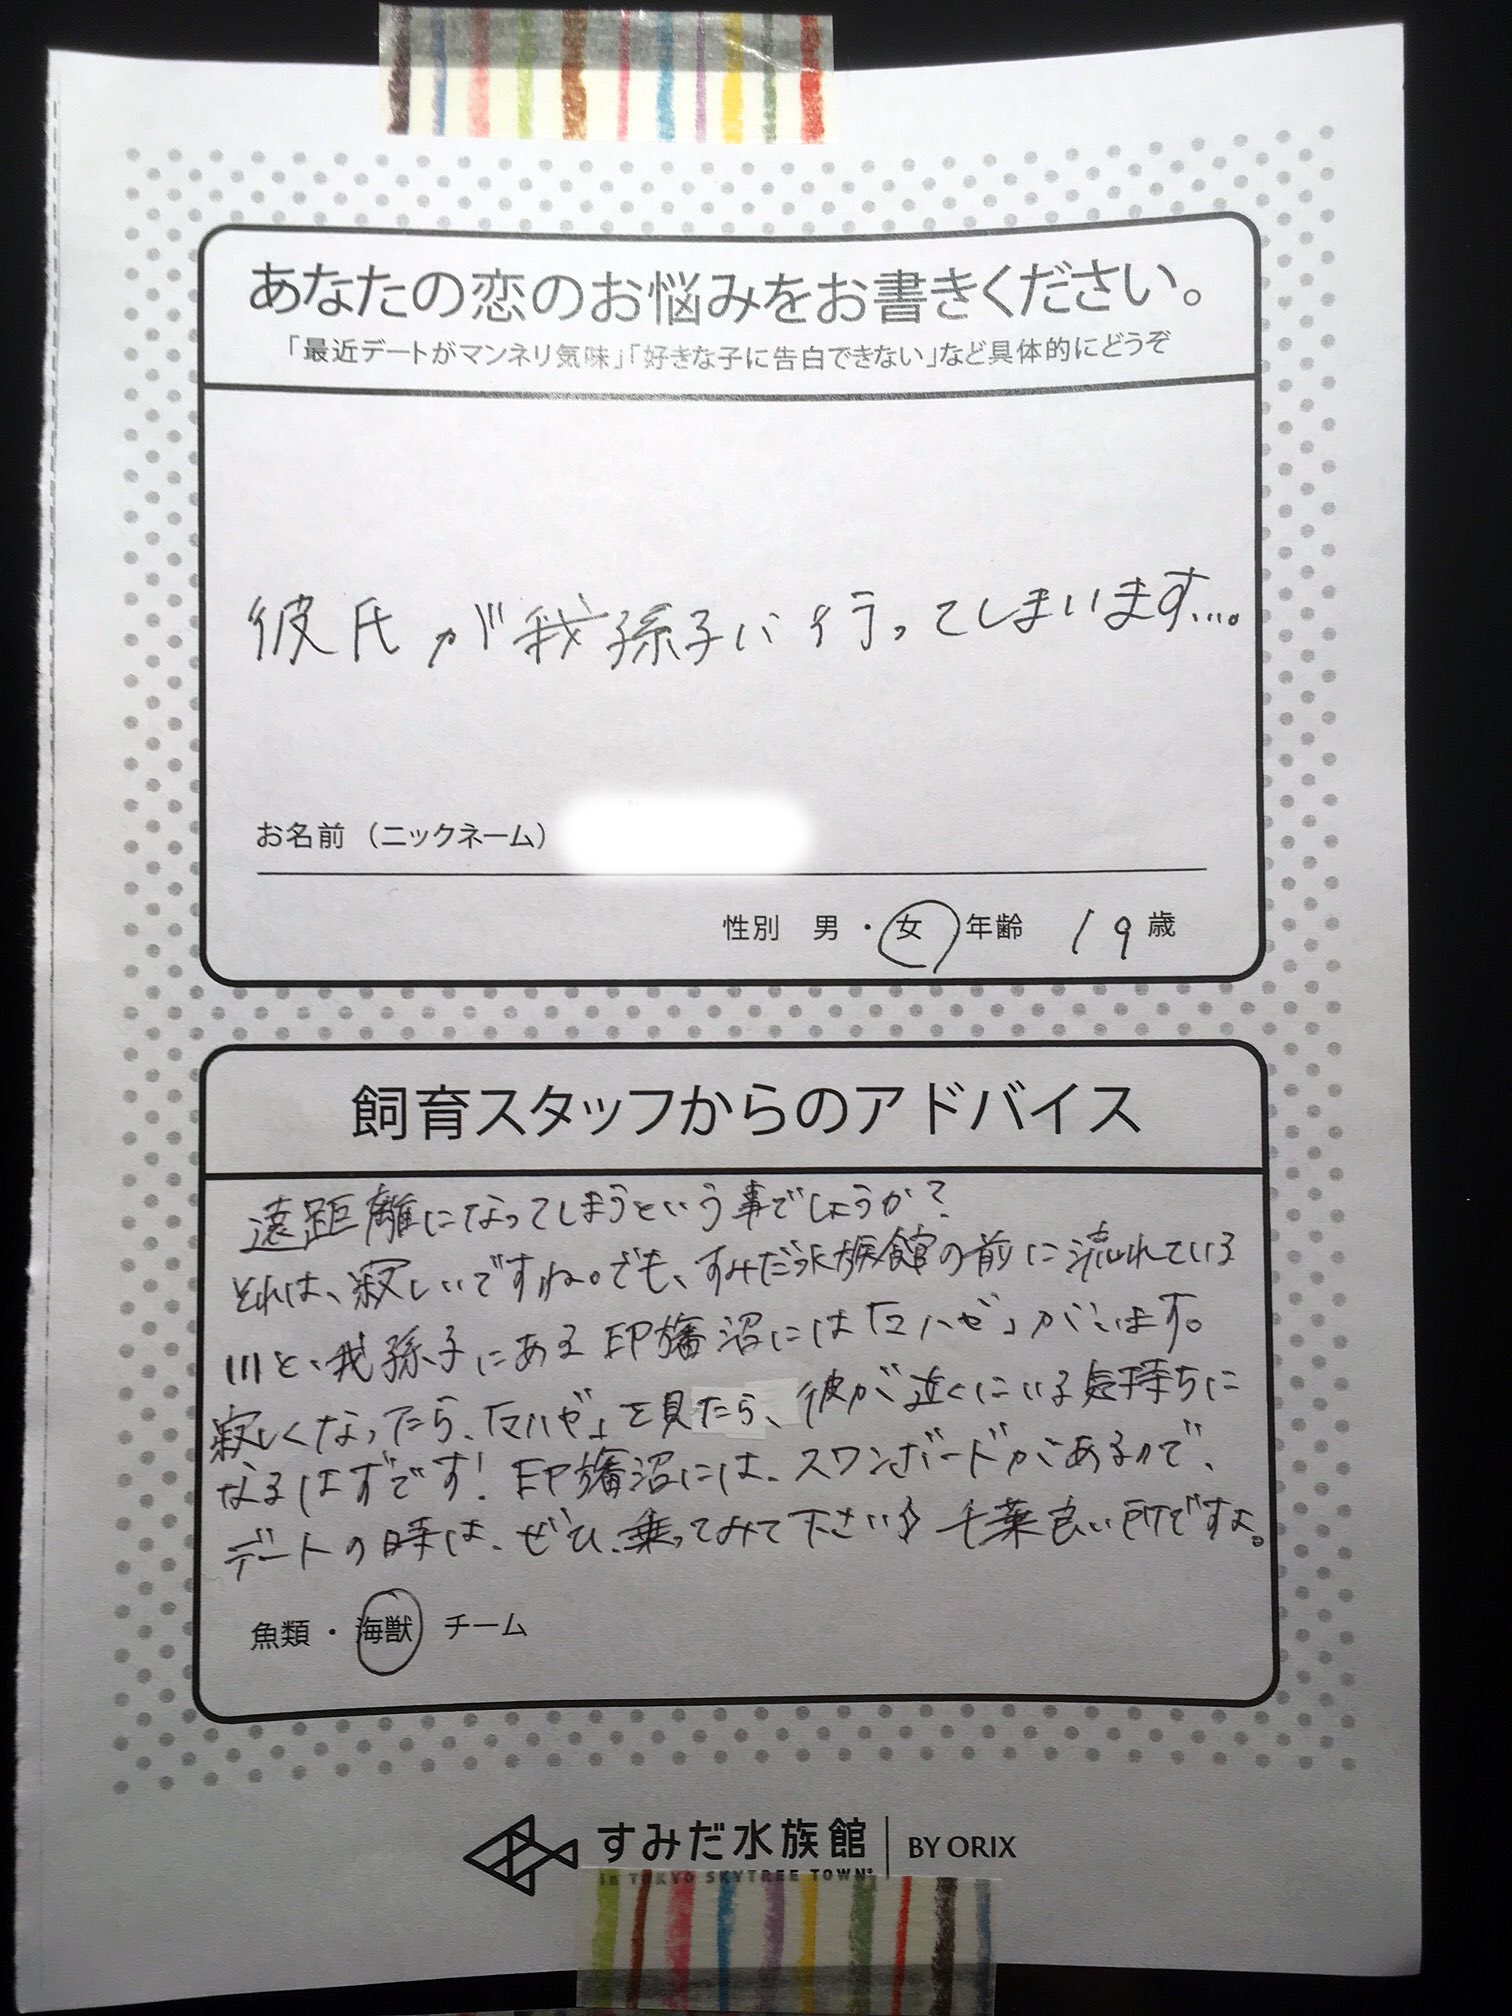 あなたの恋のお悩みをお書きください。
「最近デートがマンネリ気味」「好きな子に告白できない」など具体的にどうぞ
彼氏が我孫子に行ってしまいます…。
お名前（ニックネーム）
性別 男・女 年齢 19歳
飼育スタッフからのアドバイス
遠距離になってしまうという事でしょうか？
それは、寂しいですね。でも、すみだ水族館の前に流れている
川と、我孫子にある印旛沼には「マハゼ」がいます。
寂しくなったら、「マハゼ」を見たら、彼が近くにいる気持ちに
なるはずです！印旛沼には、スワンボードがあるので、
デートの時は、ぜひ、乗ってみて下さい♪ 千葉良い所ですよ。
魚類・海獣 チーム
すみだ水族館 BY ORIX
in TOKYO SKYTREE TOWN®